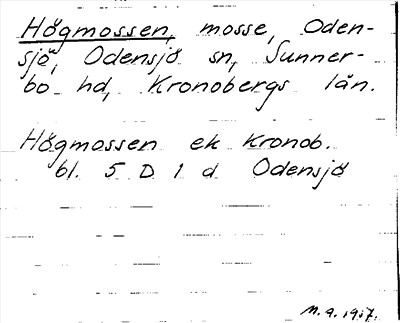 Högmossen, mosse, Oden-
sjö, Odensjö sn, Sunner-
bo hd, Kronobergs län.
Högmossen ek Kronob.
bl. 5 D 1 d Odensjö
M.A. 1917.